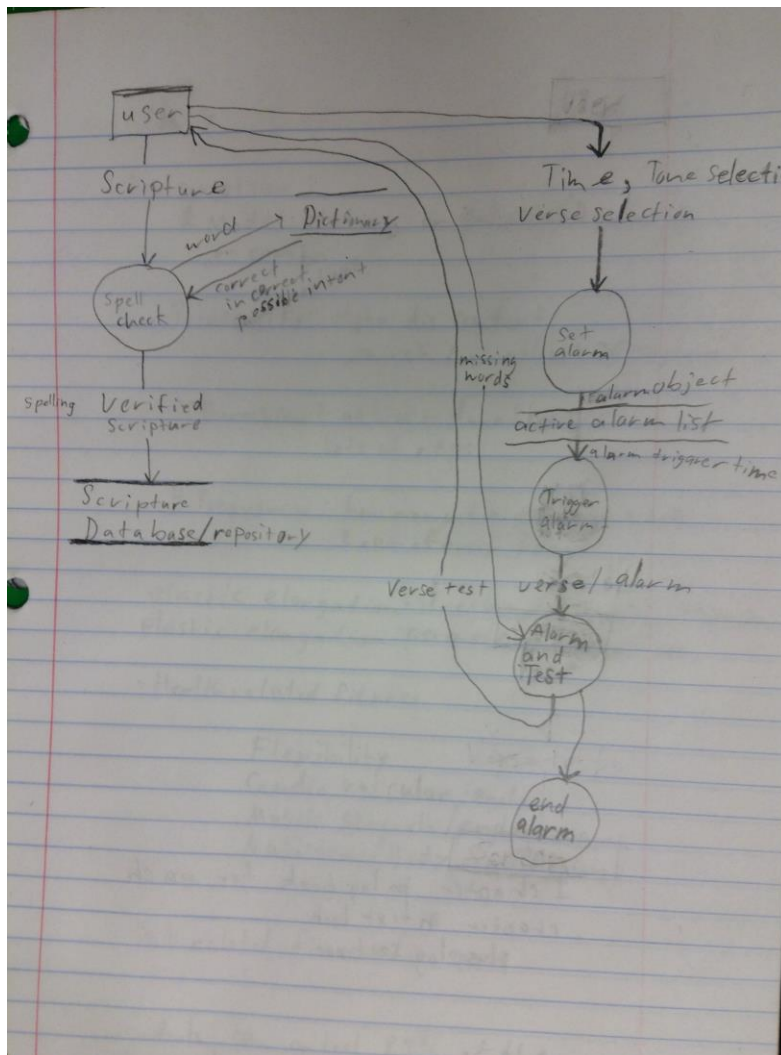 user
Scripture
word
Dictionary
correct
incorrect
possible intent
Spell
check
spelling Verified
Scripture
Scripture
Database/repository
Time, Tone selecti
verse selection
set
alarm
alarm object
active alarm list
alarm trigger time
Trigger
alarm
missing
words
Verse test
verse/alarm
Alarm
and
Test
end
alarm